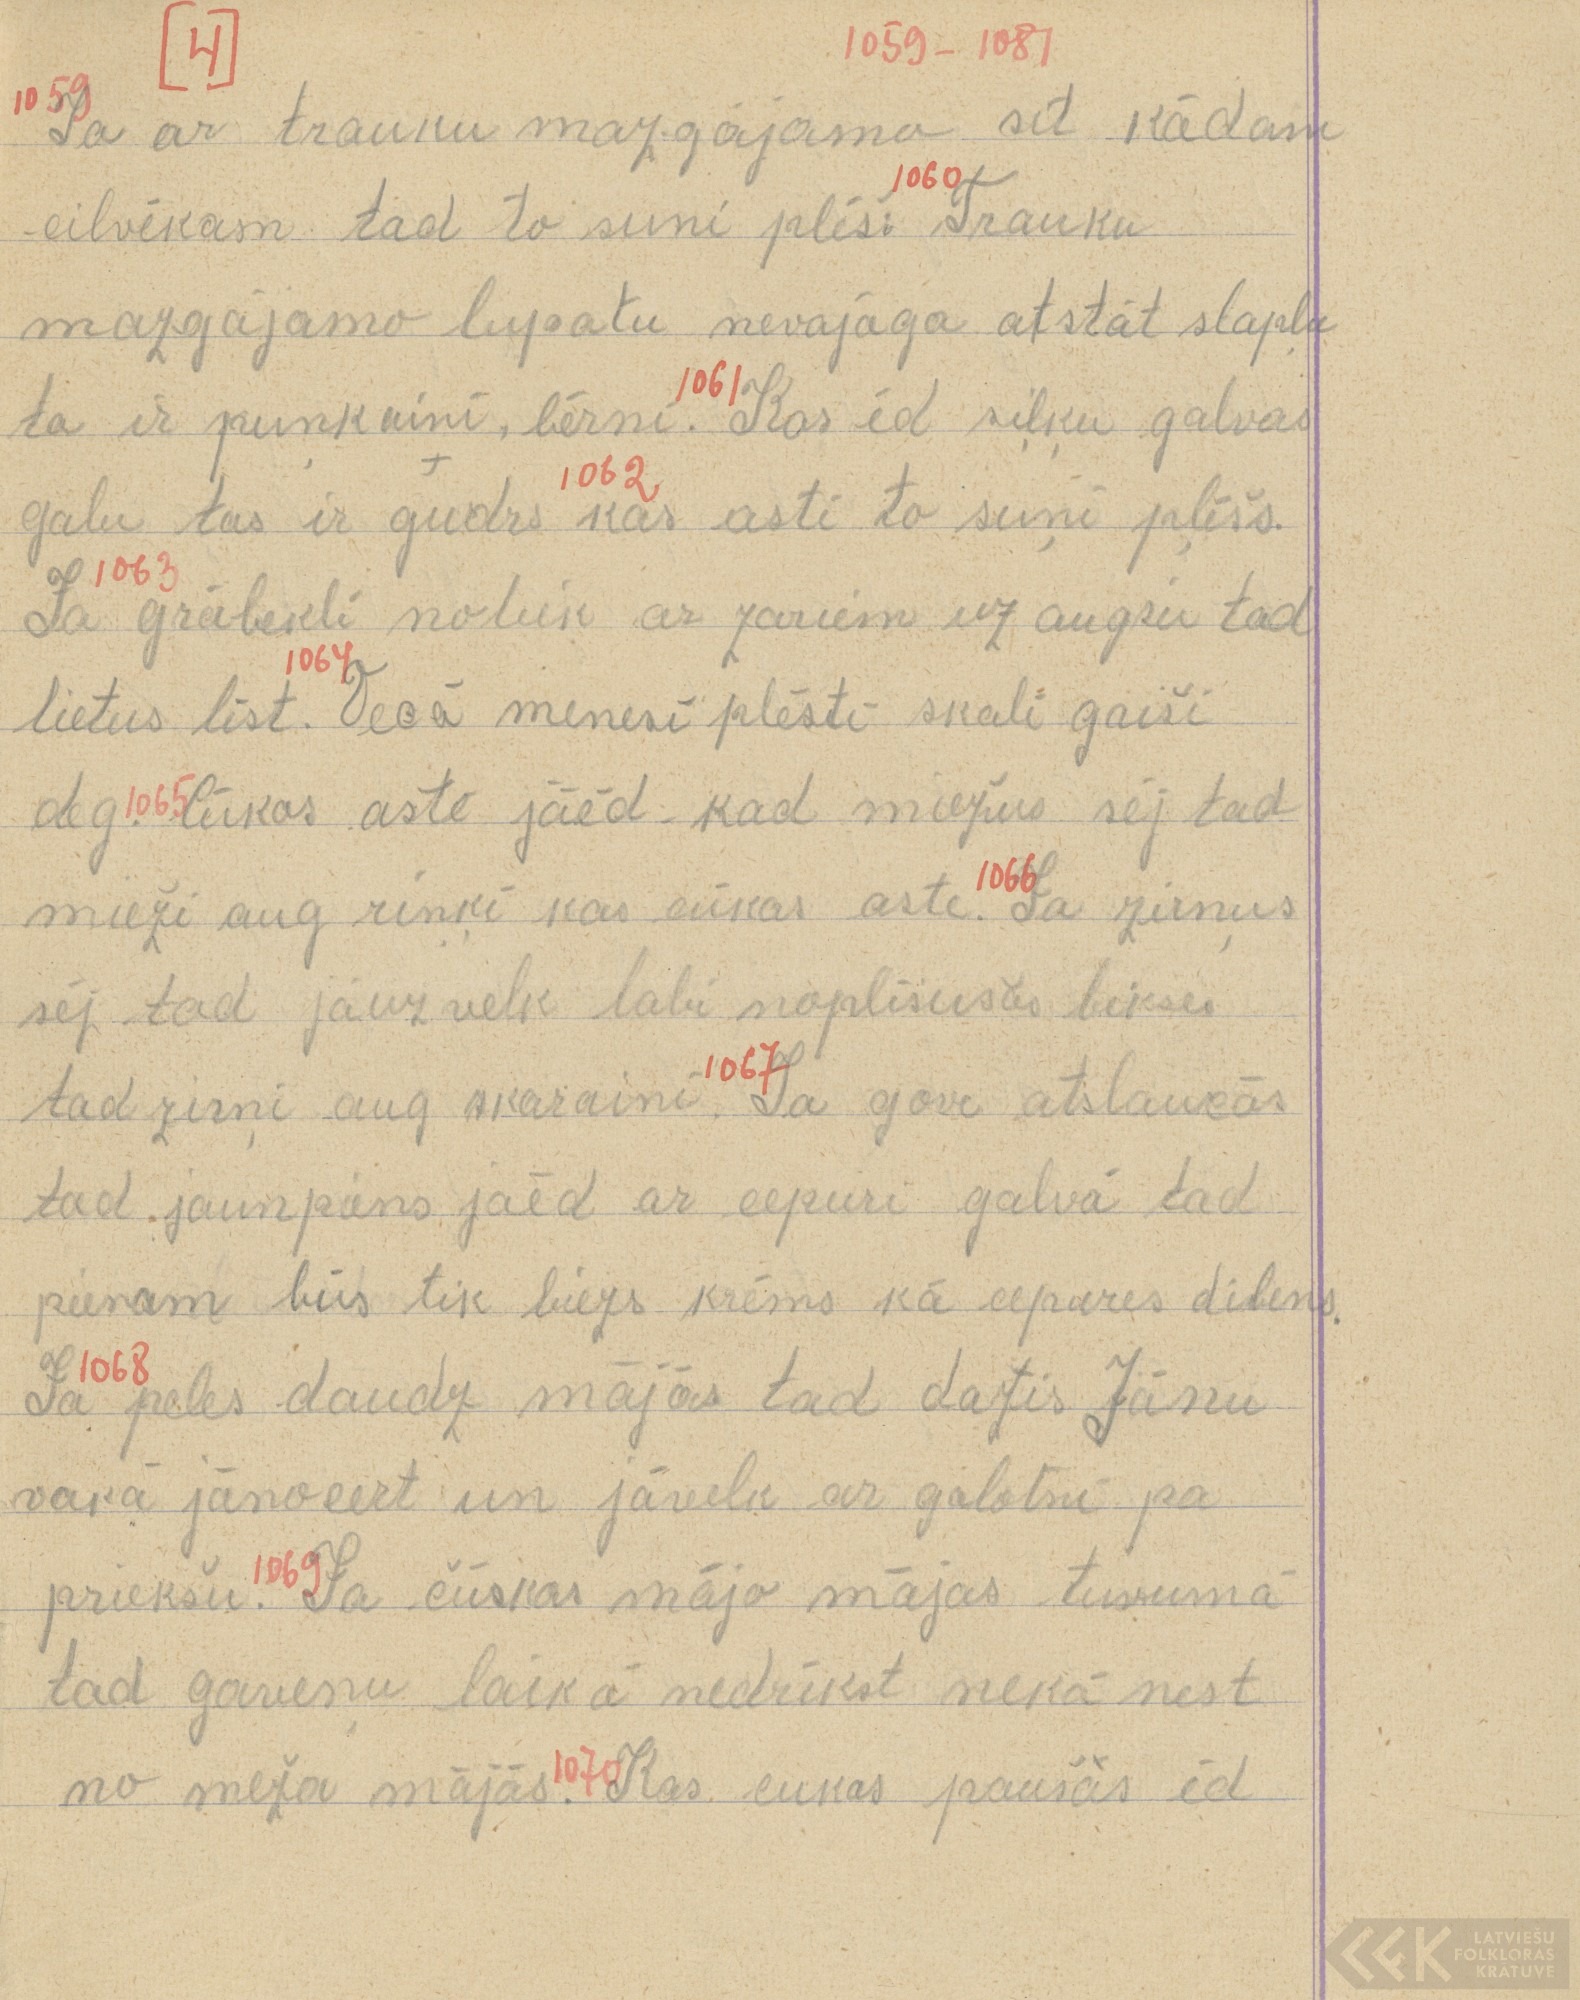 [4] 1059 – 1081
1059 Ja ar trauku mazgājamo sit kādam
cilvēkam tad to suni plēš. 1060 Trauku
mazgājamo lupatu nevajaga atstāt slapļu
ta ir puņķaini, bērni. 1061 Kas ēd siļķu galvas
galu tas ir gudrs 1062 kas asti to suņi plēšs.
1063 Ja grābekli noliek ar zariem uz augšu tad
lietus līst. 1064 Vecā menesī plēsti skali gaiši
deg. 1065 Cūkas aste jāēd kad miežus sēj tad
mieži aug riņķī kas cūkas aste. 1066 Ja zirņus
sēj tad jāuzvelk labi noplīsušās bikses
tad zirņi aug skaraini. 1067 Ja gove atslaucās
tad jaunpiens jaēd ar cepuri galvā tad
pienam būs tik biezs krēms kā cepures dibens.
1068 Ja peles daudz mājās tad dazis Jānu
vakā jānocert un jāvelk ar galotni pa
priekšu. 1069 Ja čūskas mājo mājas tuvumā
tad gaveņu laikā nedrīkst nekā nest
no meža mājās. 1070 Kas cukas paušās ēd
LATVIEŠU
FOLKLORAS
KRĀTUVE